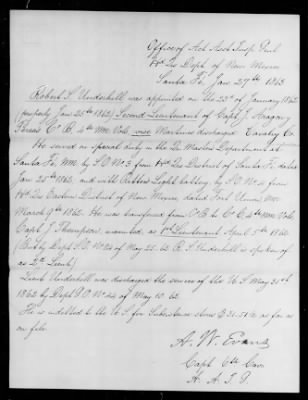 Office of Act Asst Insp Genl
Hd Qrs Dept of New Mexico
Santa Fé, Jan 27th 1863
Robert S Underhill was appointed on the 23d of January 1862
(properly Jan 25th 1862) Second Lieutenant of Capt J. Aragon y
Perea's Co B, 4th NM Vols, vice Martinez discharged Cavalry Co
He served on special duty in the Qr Masters Department at
Santa Fé, NM by S.O No 3 from Hd Qrs District of Santa Fé, dated
Jan 25th 1862, and with Battery by S.O No 4 from
Hd Qrs Eastern District of New Mexico, dated Fort Union, NM.
March 9th 1862. He was transferred from Co B to Co E 4th NM Vols
Capt J. Thompson, mounted, as 1st Lieutenant April 3d 1862
(But by Dept S.O No 24 of May 25. 62 R S Underhill is spoken of
as 2d Lieut)
Lieut Underhill was discharged the service of the U S May 31st
1862 by Dept S O No 44 of May 10. 62
He is indebted to the U S for Subsistence stores $21.51½ as far as
on file.
A. W. Evans
Capt 6th Cav
A. A. I. G.